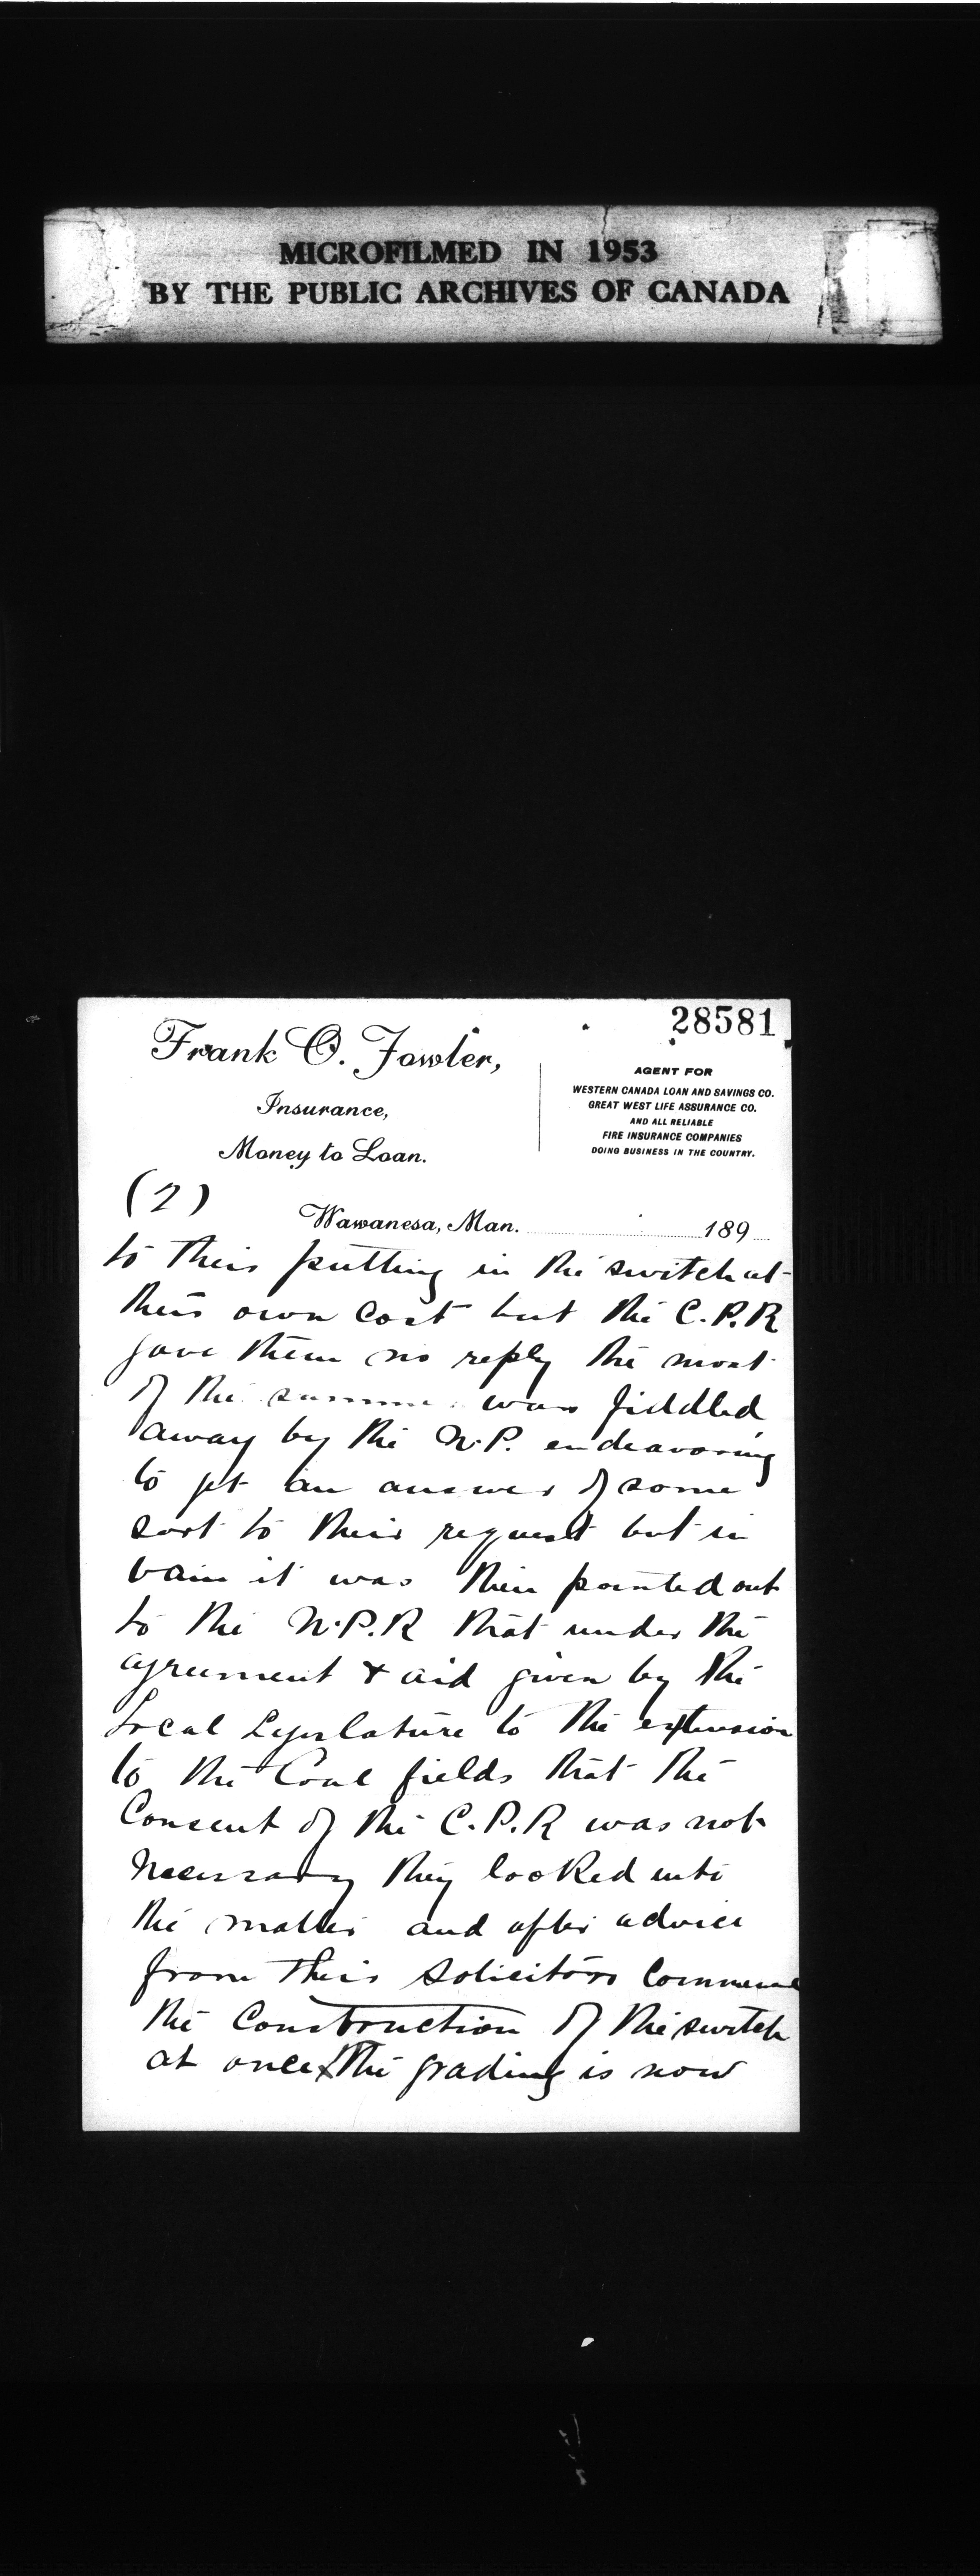 MICROFILMED IN 1953
BY THE PUBLIC ARCHIVES OF CANADA
28581
Frank O. Fowler,
Insurance,
Money to Loan.
AGENT FOR
WESTERN CANADA LOAN AND SAVINGS CO.
GREAT WEST LIFE ASSURANCE CO.
AND ALL RELIABLE
FIRE INSURANCE COMPANIES
DOING BUSINESS IN THE COUNTRY.
(2)
Wawanesa, Man. 189
to their putting in the switch at
their own cost but the C.P.R
gave them no reply the most
of the summer was fiddled
away by the N.P. endeavoring
to get an answer of some
sort to their request but in
vain it was then pointed out
to the N.P.R that under the
agreement & aid given by the
Local Legislature to the extension
to the Coal fields that the
Consent of the C.P.R was not
necessary they looked into
the matter and after advice
from their Solicitors Commence
the Construction of the switch
at once the grading is now